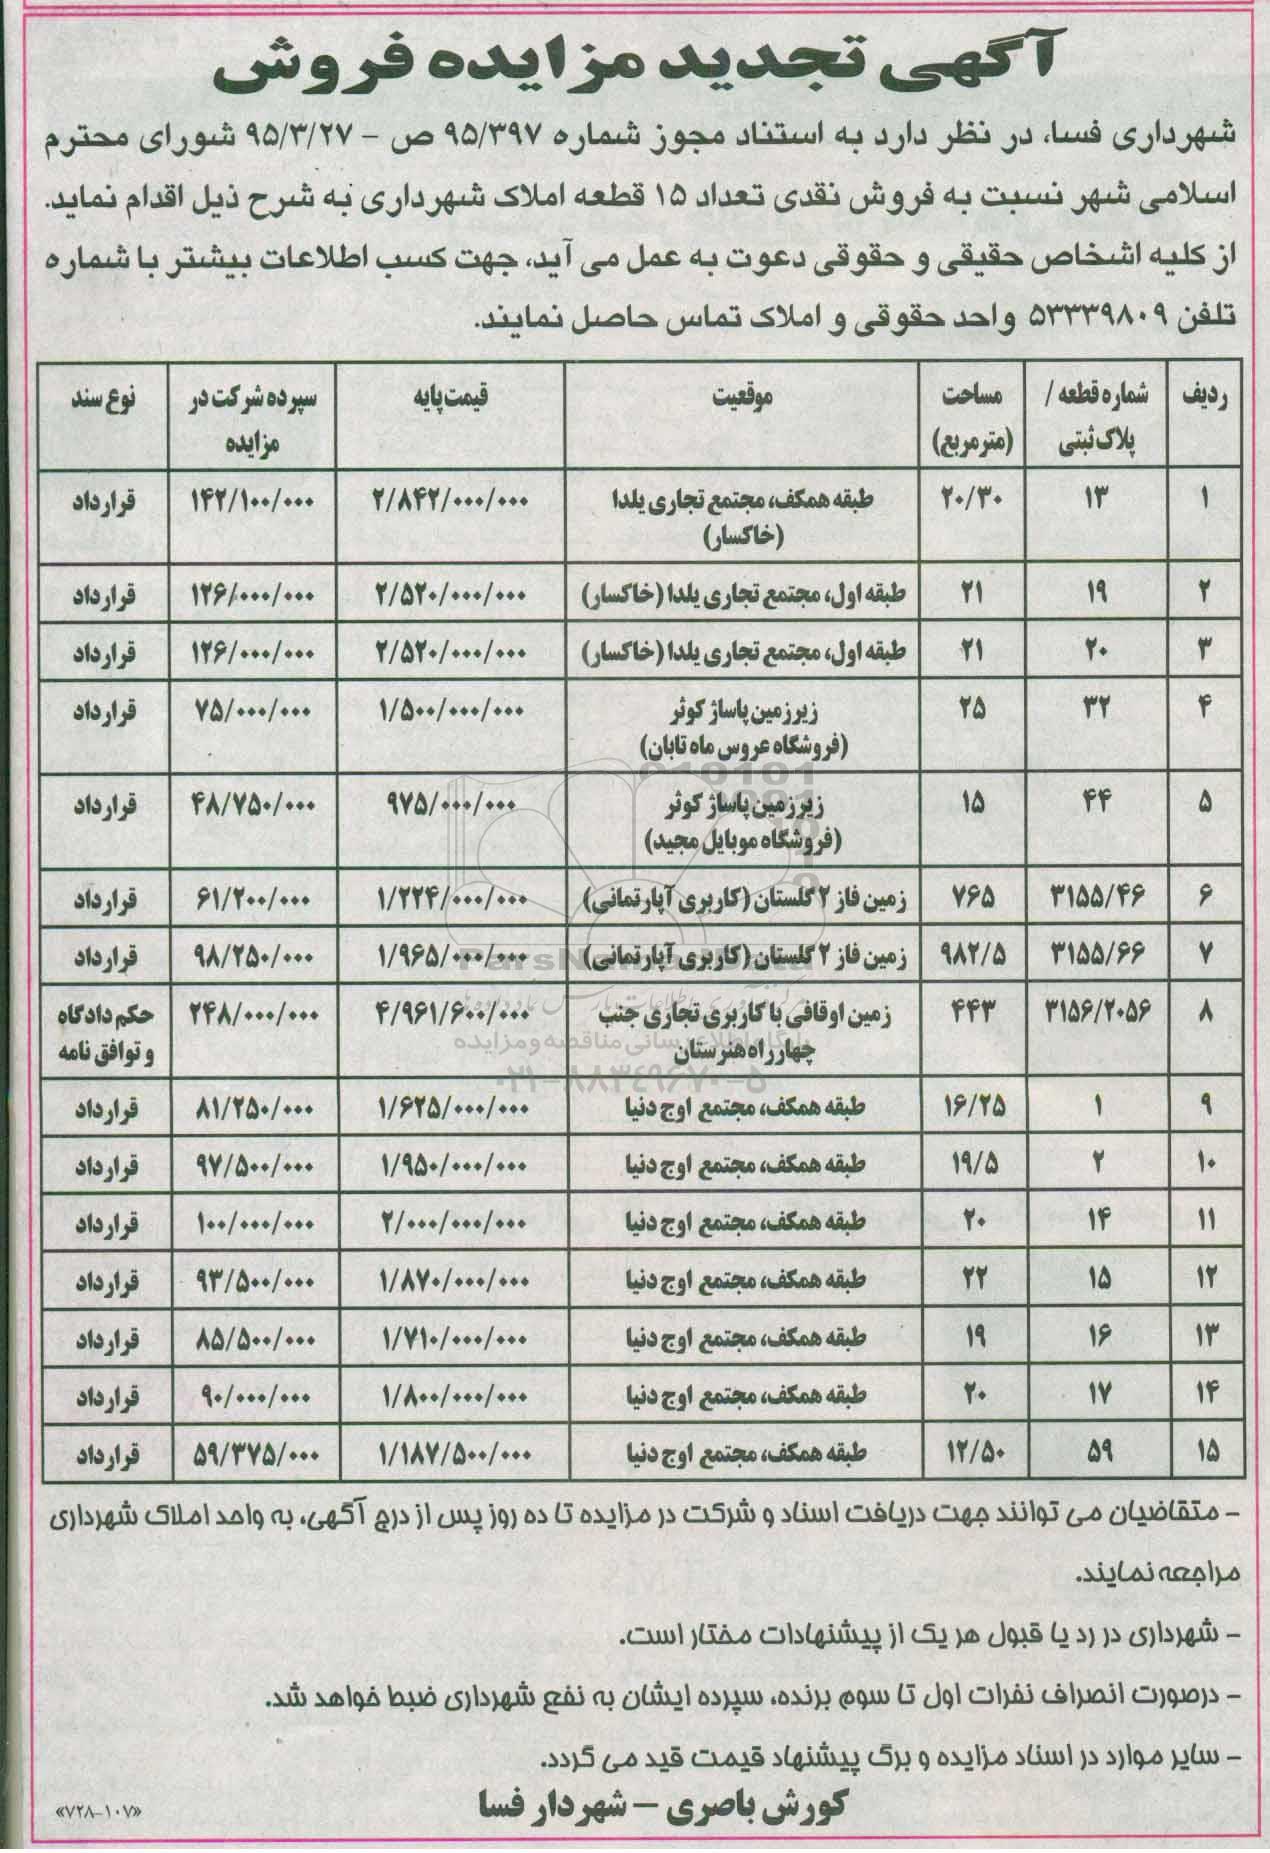 آگهی تجدید مزایده فروش
شهرداری فسا، در نظر دارد به استناد مجوز شماره ۹۵/۳۹۷ ص - ۹۵/۳/۲۷ شورای محترم
اسلامی شهر نسبت به فروش نقدی تعداد ۱۵ قطعه املاک شهرداری به شرح ذیل اقدام نماید.
از کلیه اشخاص حقیقی و حقوقی دعوت به عمل می آید، جهت کسب اطلاعات بیشتر با شماره
تلفن ۵۳۳۳۹۸۰۹ واحد حقوقی و املاک تماس حاصل نمایند.
ردیف شماره قطعه / مساحت موقعیت قیمت پایه سپرده شرکت در نوع سند
پلاک ثبتی (مترمربع) مزایده
۱ ۱۳ ۲۰/۳۰ طبقه همکف، مجتمع تجاری یلدا ۲/۸۴۲/۰۰۰/۰۰۰ ۱۴۲/۱۰۰/۰۰۰ قرارداد
(خاکسار)
۲ ۱۹ ۲۱ طبقه اول، مجتمع تجاری یلدا (خاکسار) ۲/۵۲۰/۰۰۰/۰۰۰ ۱۲۶/۰۰۰/۰۰۰ قرارداد
۳ ۲۰ ۲۱ طبقه اول، مجتمع تجاری یلدا (خاکسار) ۲/۵۲۰/۰۰۰/۰۰۰ ۱۲۶/۰۰۰/۰۰۰ قرارداد
۴ ۳۲ ۲۵ زیرزمین پاساژ کوثر ۱/۵۰۰/۰۰۰/۰۰۰ ۷۵/۰۰۰/۰۰۰ قرارداد
(فروشگاه عروس ماه تابان)
۵ ۴۴ ۱۵ زیرزمین پاساژ کوثر ۹۷۵/۰۰۰/۰۰۰ ۴۸/۷۵۰/۰۰۰ قرارداد
(فروشگاه موبایل مجید)
۶ ۳۱۵۵/۴۶ ۷۶۵ زمین فاز ۲ گلستان (کاربری آپارتمانی) ۱/۲۲۴/۰۰۰/۰۰۰ ۶۱/۲۰۰/۰۰۰ قرارداد
۷ ۳۱۵۵/۶۶ ۹۸۲/۵ زمین فاز ۲ گلستان (کاربری آپارتمانی) ۱/۹۶۵/۰۰۰/۰۰۰ ۹۸/۲۵۰/۰۰۰ قرارداد
ParsNamadData
۸ ۳۱۵۶/۲۰۵۶ ۴۴۳ زمین اوقافی با کاربری تجاری جنب ۴/۹۶۱/۶۰۰/۰۰۰ ۲۴۸/۰۰۰/۰۰۰ حکم دادگاه
چهارراه هنرستان و توافق نامه
پایگاه اطلاع رسانی مناقصه و مزایده
۰۲۱-۸۸۳۴۹۶۷۰-۵
۹ ۱ ۱۶/۲۵ طبقه همکف، مجتمع اوج دنیا ۱/۶۲۵/۰۰۰/۰۰۰ ۸۱/۲۵۰/۰۰۰ قرارداد
۱۰ ۲ ۱۹/۵ طبقه همکف، مجتمع اوج دنیا ۱/۹۵۰/۰۰۰/۰۰۰ ۹۷/۵۰۰/۰۰۰ قرارداد
۱۱ ۱۴ ۲۰ طبقه همکف، مجتمع اوج دنیا ۲/۰۰۰/۰۰۰/۰۰۰ ۱۰۰/۰۰۰/۰۰۰ قرارداد
۱۲ ۱۵ ۲۲ طبقه همکف، مجتمع اوج دنیا ۱/۸۷۰/۰۰۰/۰۰۰ ۹۳/۵۰۰/۰۰۰ قرارداد
۱۳ ۱۶ ۱۹ طبقه همکف، مجتمع اوج دنیا ۱/۷۱۰/۰۰۰/۰۰۰ ۸۵/۵۰۰/۰۰۰ قرارداد
۱۴ ۱۷ ۲۰ طبقه همکف، مجتمع اوج دنیا ۱/۸۰۰/۰۰۰/۰۰۰ ۹۰/۰۰۰/۰۰۰ قرارداد
۱۵ ۵۹ ۱۲/۵۰ طبقه همکف، مجتمع اوج دنیا ۱/۱۸۷/۵۰۰/۰۰۰ ۵۹/۳۷۵/۰۰۰ قرارداد
- متقاضیان می توانند جهت دریافت اسناد و شرکت در مزایده تا ده روز پس از درج آگهی، به واحد املاک شهرداری
مراجعه نمایند.
- شهرداری در رد یا قبول هر یک از پیشنهادات مختار است.
- درصورت انصراف نفرات اول تا سوم برنده، سپرده ایشان به نفع شهرداری ضبط خواهد شد.
- سایر موارد در اسناد مزایده و برگ پیشنهاد قیمت قید می گردد.
کورش باصری - شهردار فسا
«۷۲۸-۱۰۷»